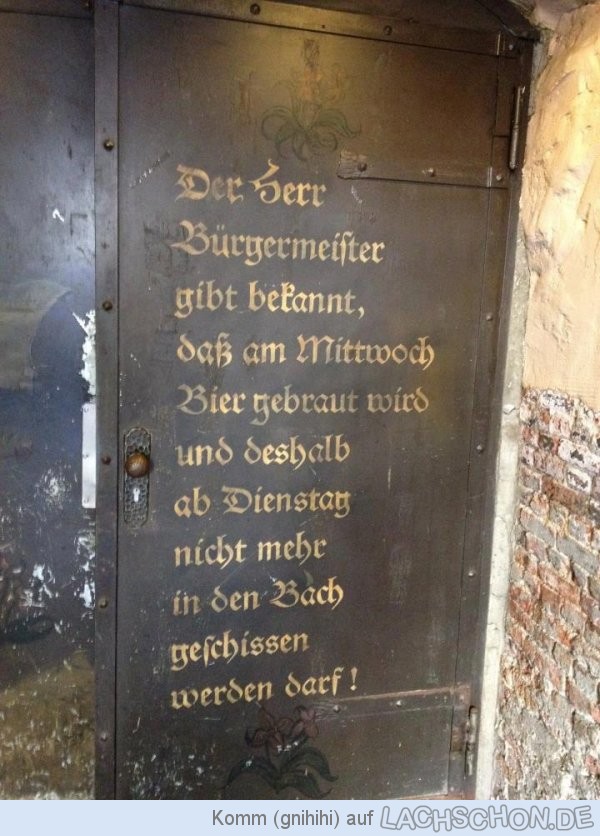 Der Herr
Bürgermeiſter
gibt bekannt,
daß am Mittwoch
Bier gebraut wird
und deshalb
ab Dienstag
nicht mehr
in den Bach
geſchissen
werden darf!
Komm (gnihihi) auf LACHSCHON.DE